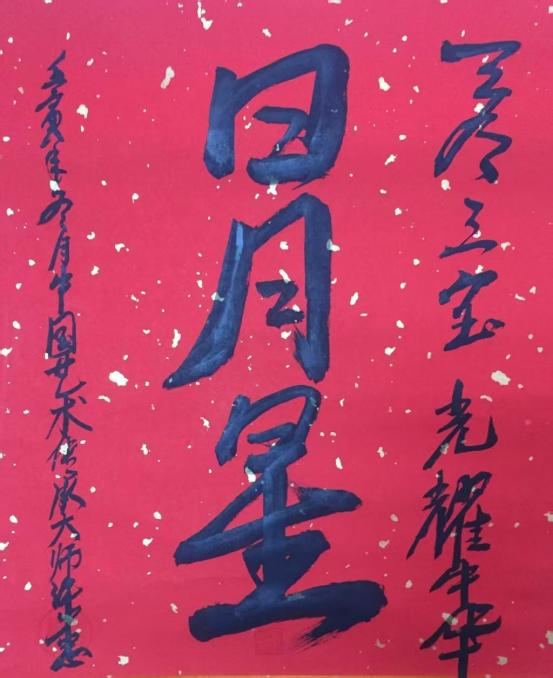 天有三宝 光耀中华
日月星
壬寅年冬月中国艺术传承大师